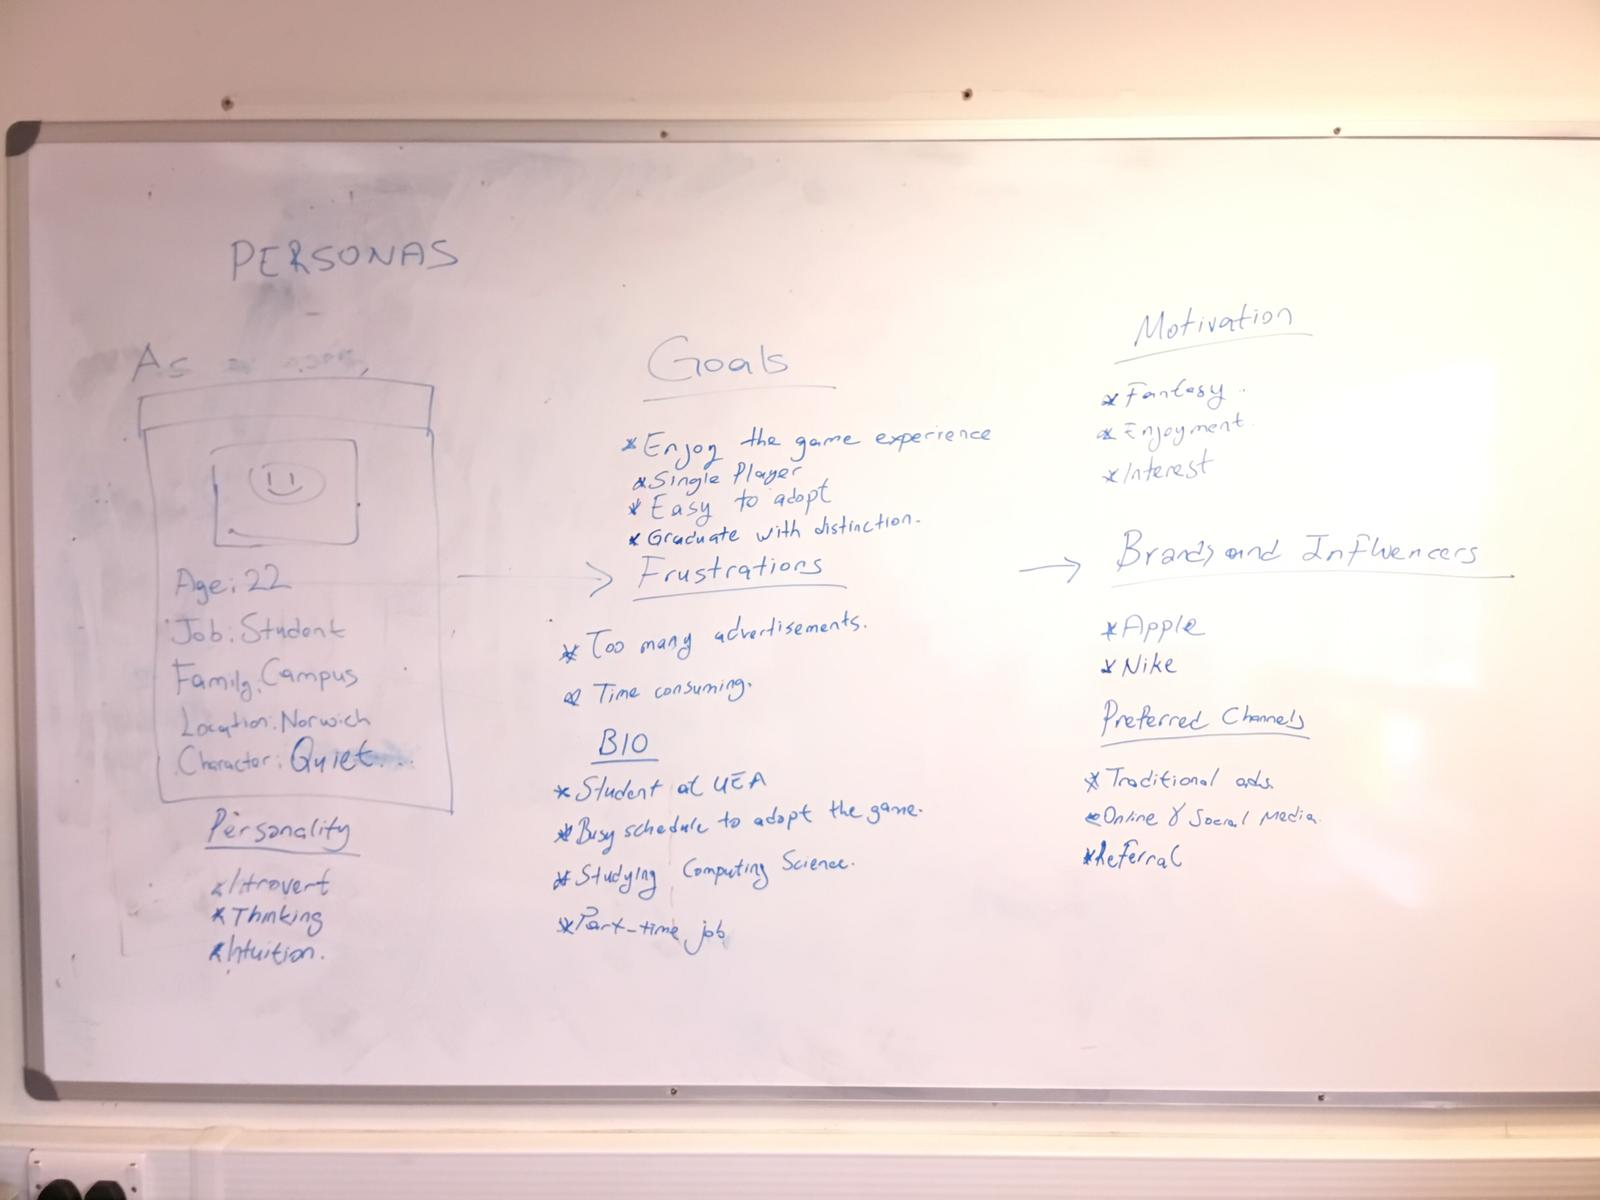 PERSONAS
As
Age: 22
Job: Student
Family: Campus
Location: Norwich
Character: Quiet...
Personality
* Itrovert
* Thinking
* Intuition.
Goals
* Enjoy the game experience
* Single Player
* Easy to adopt
* Graduate with distinction.
Frustrations
* Too many advertisements.
* Time consuming.
BIO
* Student at UEA
* Busy schedule to adopt the game.
* Studying Computing Science.
* Part-time job
Motivation
* Fantasy.
* Enjoyment.
* Interest
Brands and Influencers
* Apple
* Nike
Preferred Channels
* Traditional ads.
* Online & Social Media.
* Referral